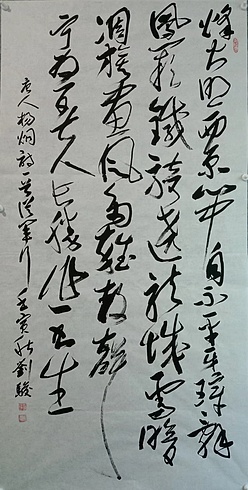 烽火照西京心中自不平牙璋辭
鳳闕鐵騎繞龍城雪暗
凋旗畫風多雜鼓聲
寧為百夫長勝作一書生
唐人楊炯詩一首從軍行 壬寅秋劉駿